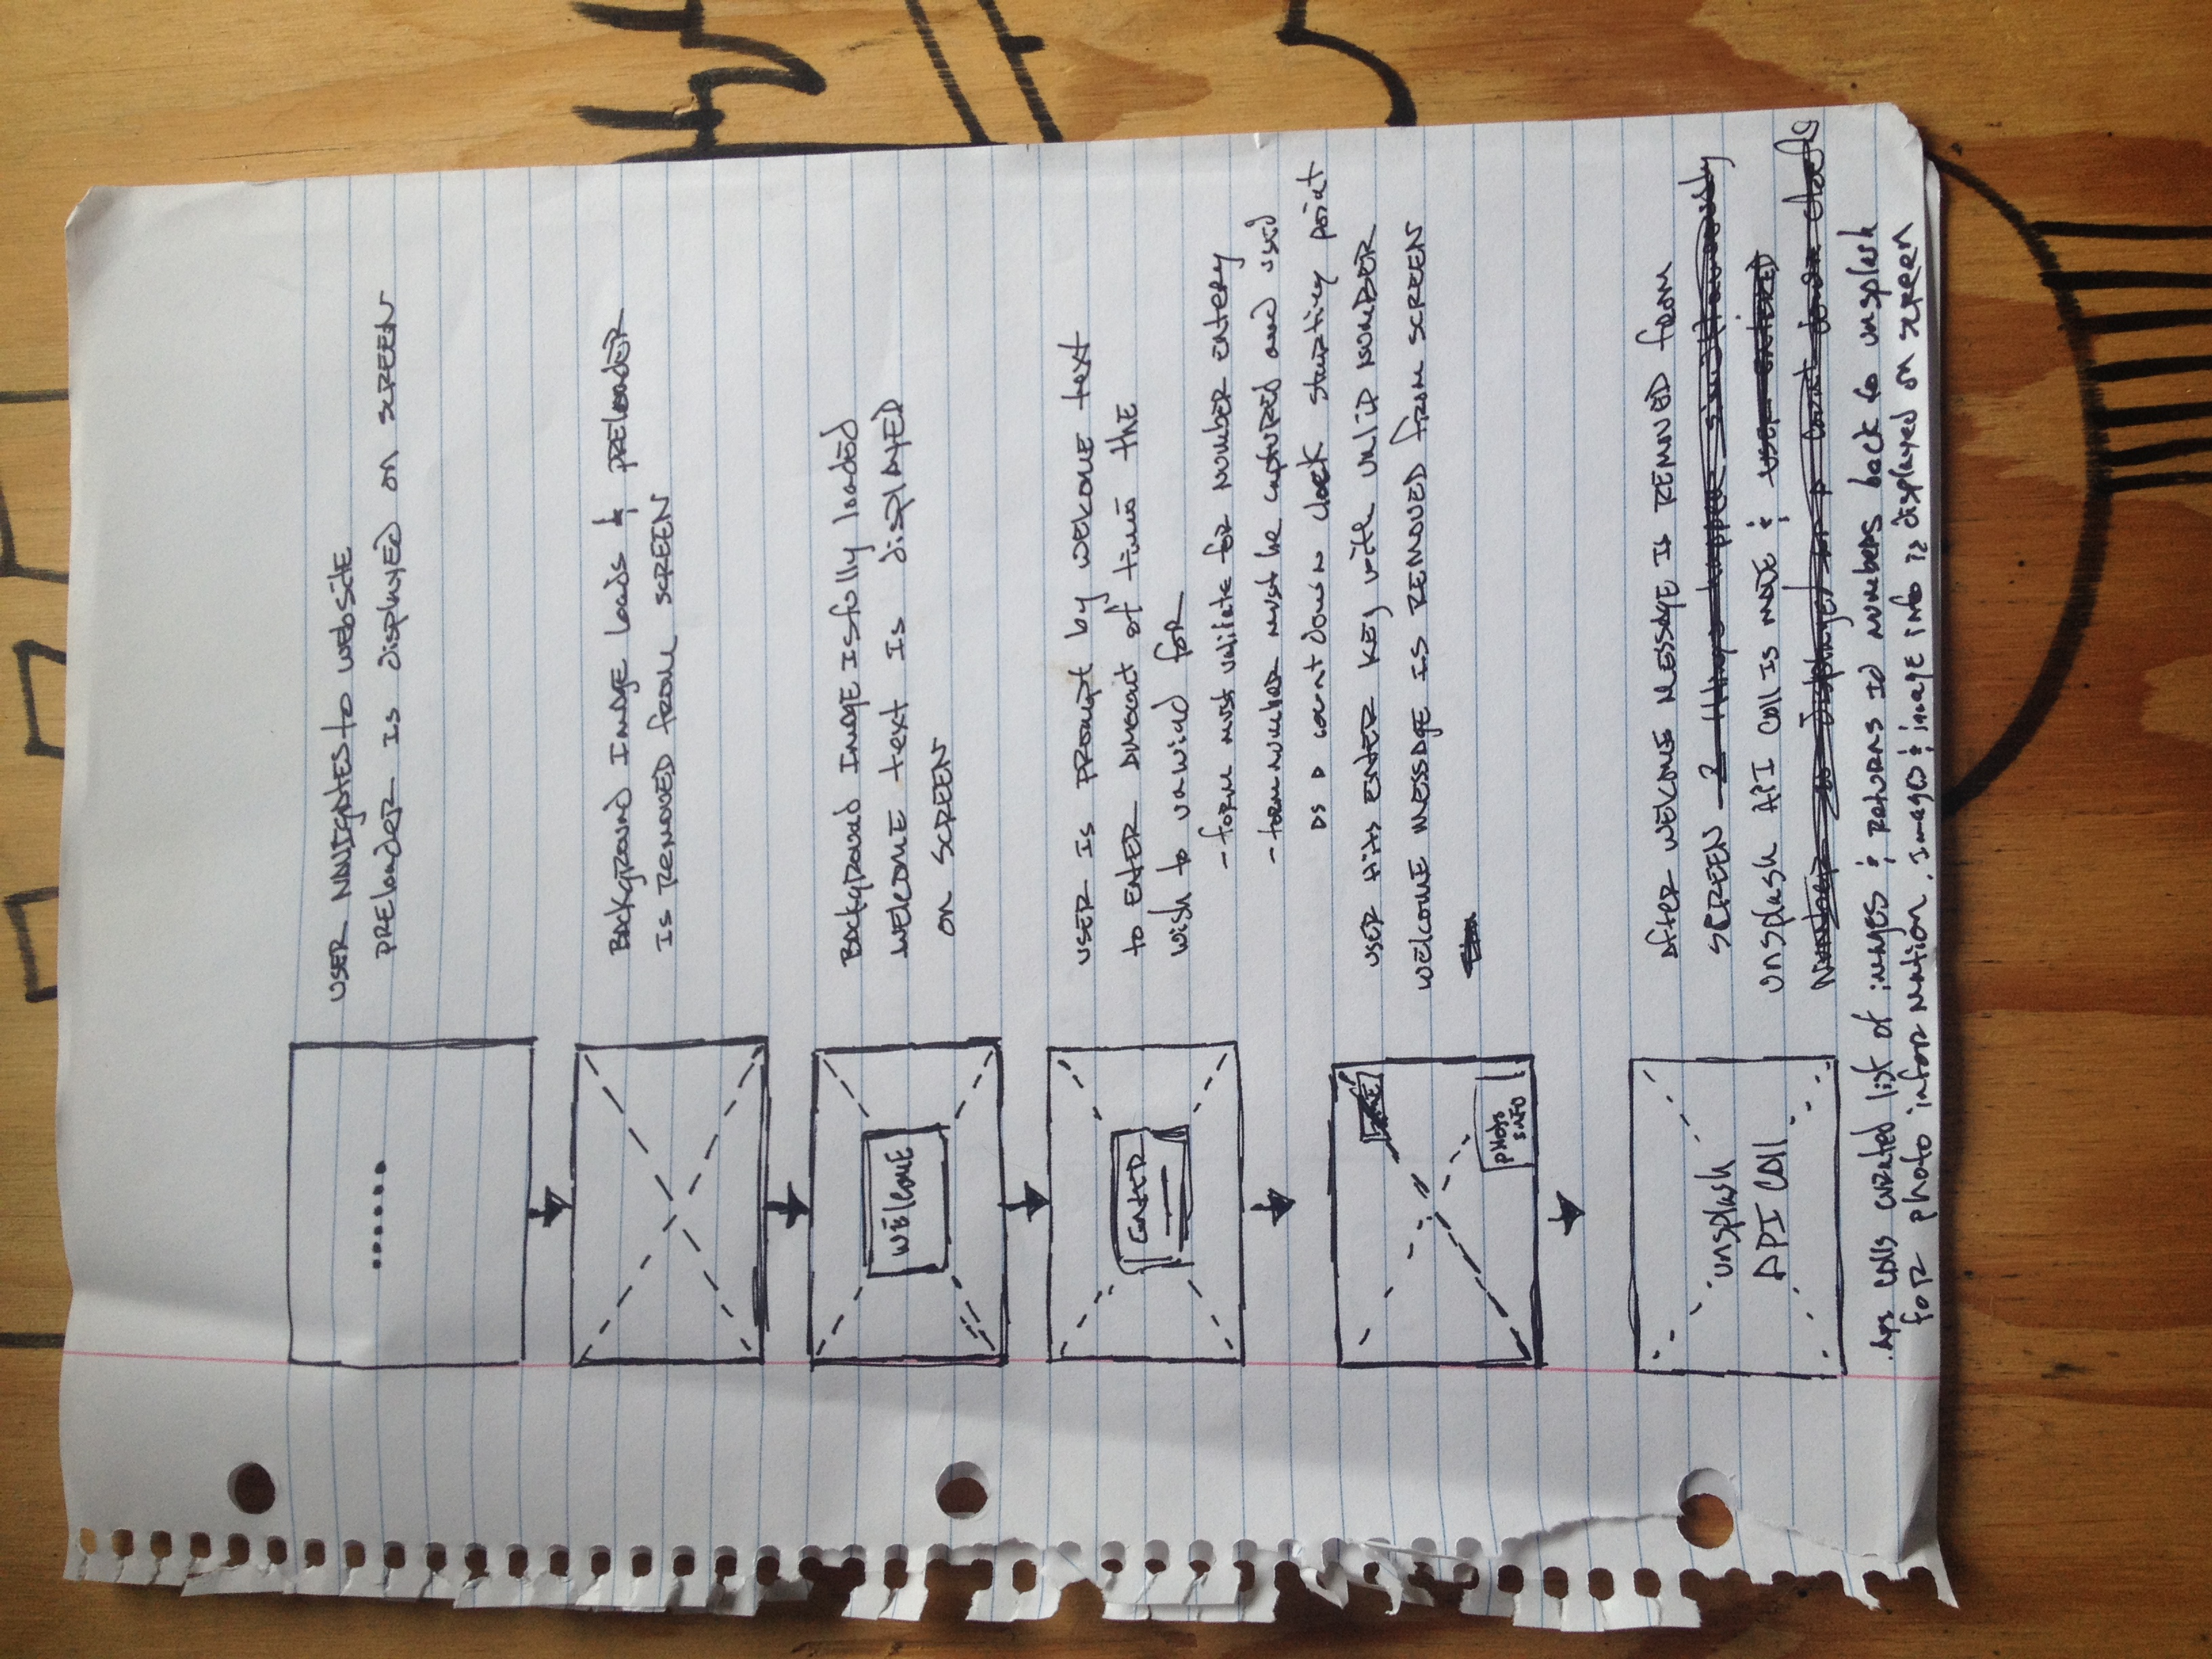 USER NAVIGATES to WEBSITE
PRELOADER IS displAYED on SCREEN
BACkgROUND IMAGE loads & PRELOADER
IS REMOVED from SCREEN
WELCOME
BACkgROUND IMAGE IS fully loaded
WELCOME text IS displAYED
on SCREEN
ENTER
USER IS PROMPT by WELCOME text
to ENTER AMOUNT of time the
wish to unwind for
- form must validate for NUMBER ENTERY
- form number must be captured and used
as a count down clock starting point
USER Hits ENTER KEY with VALID NUMBER
WELCOME MESSAGE IS REMOVED from SCREEN
PHOTO
INFO
unsplash
API CALL
After WELCOME MESSAGE IS REMOVED from
SCREEN 2 things happen simultaneously
unsplash API CALL IS MADE & USER ENTERED
NUMBER is displayed as a count down clock
API calls curated list of images & RETURNS Id numbers back to unsplash
for photo information. Images & image info is displayed on screen